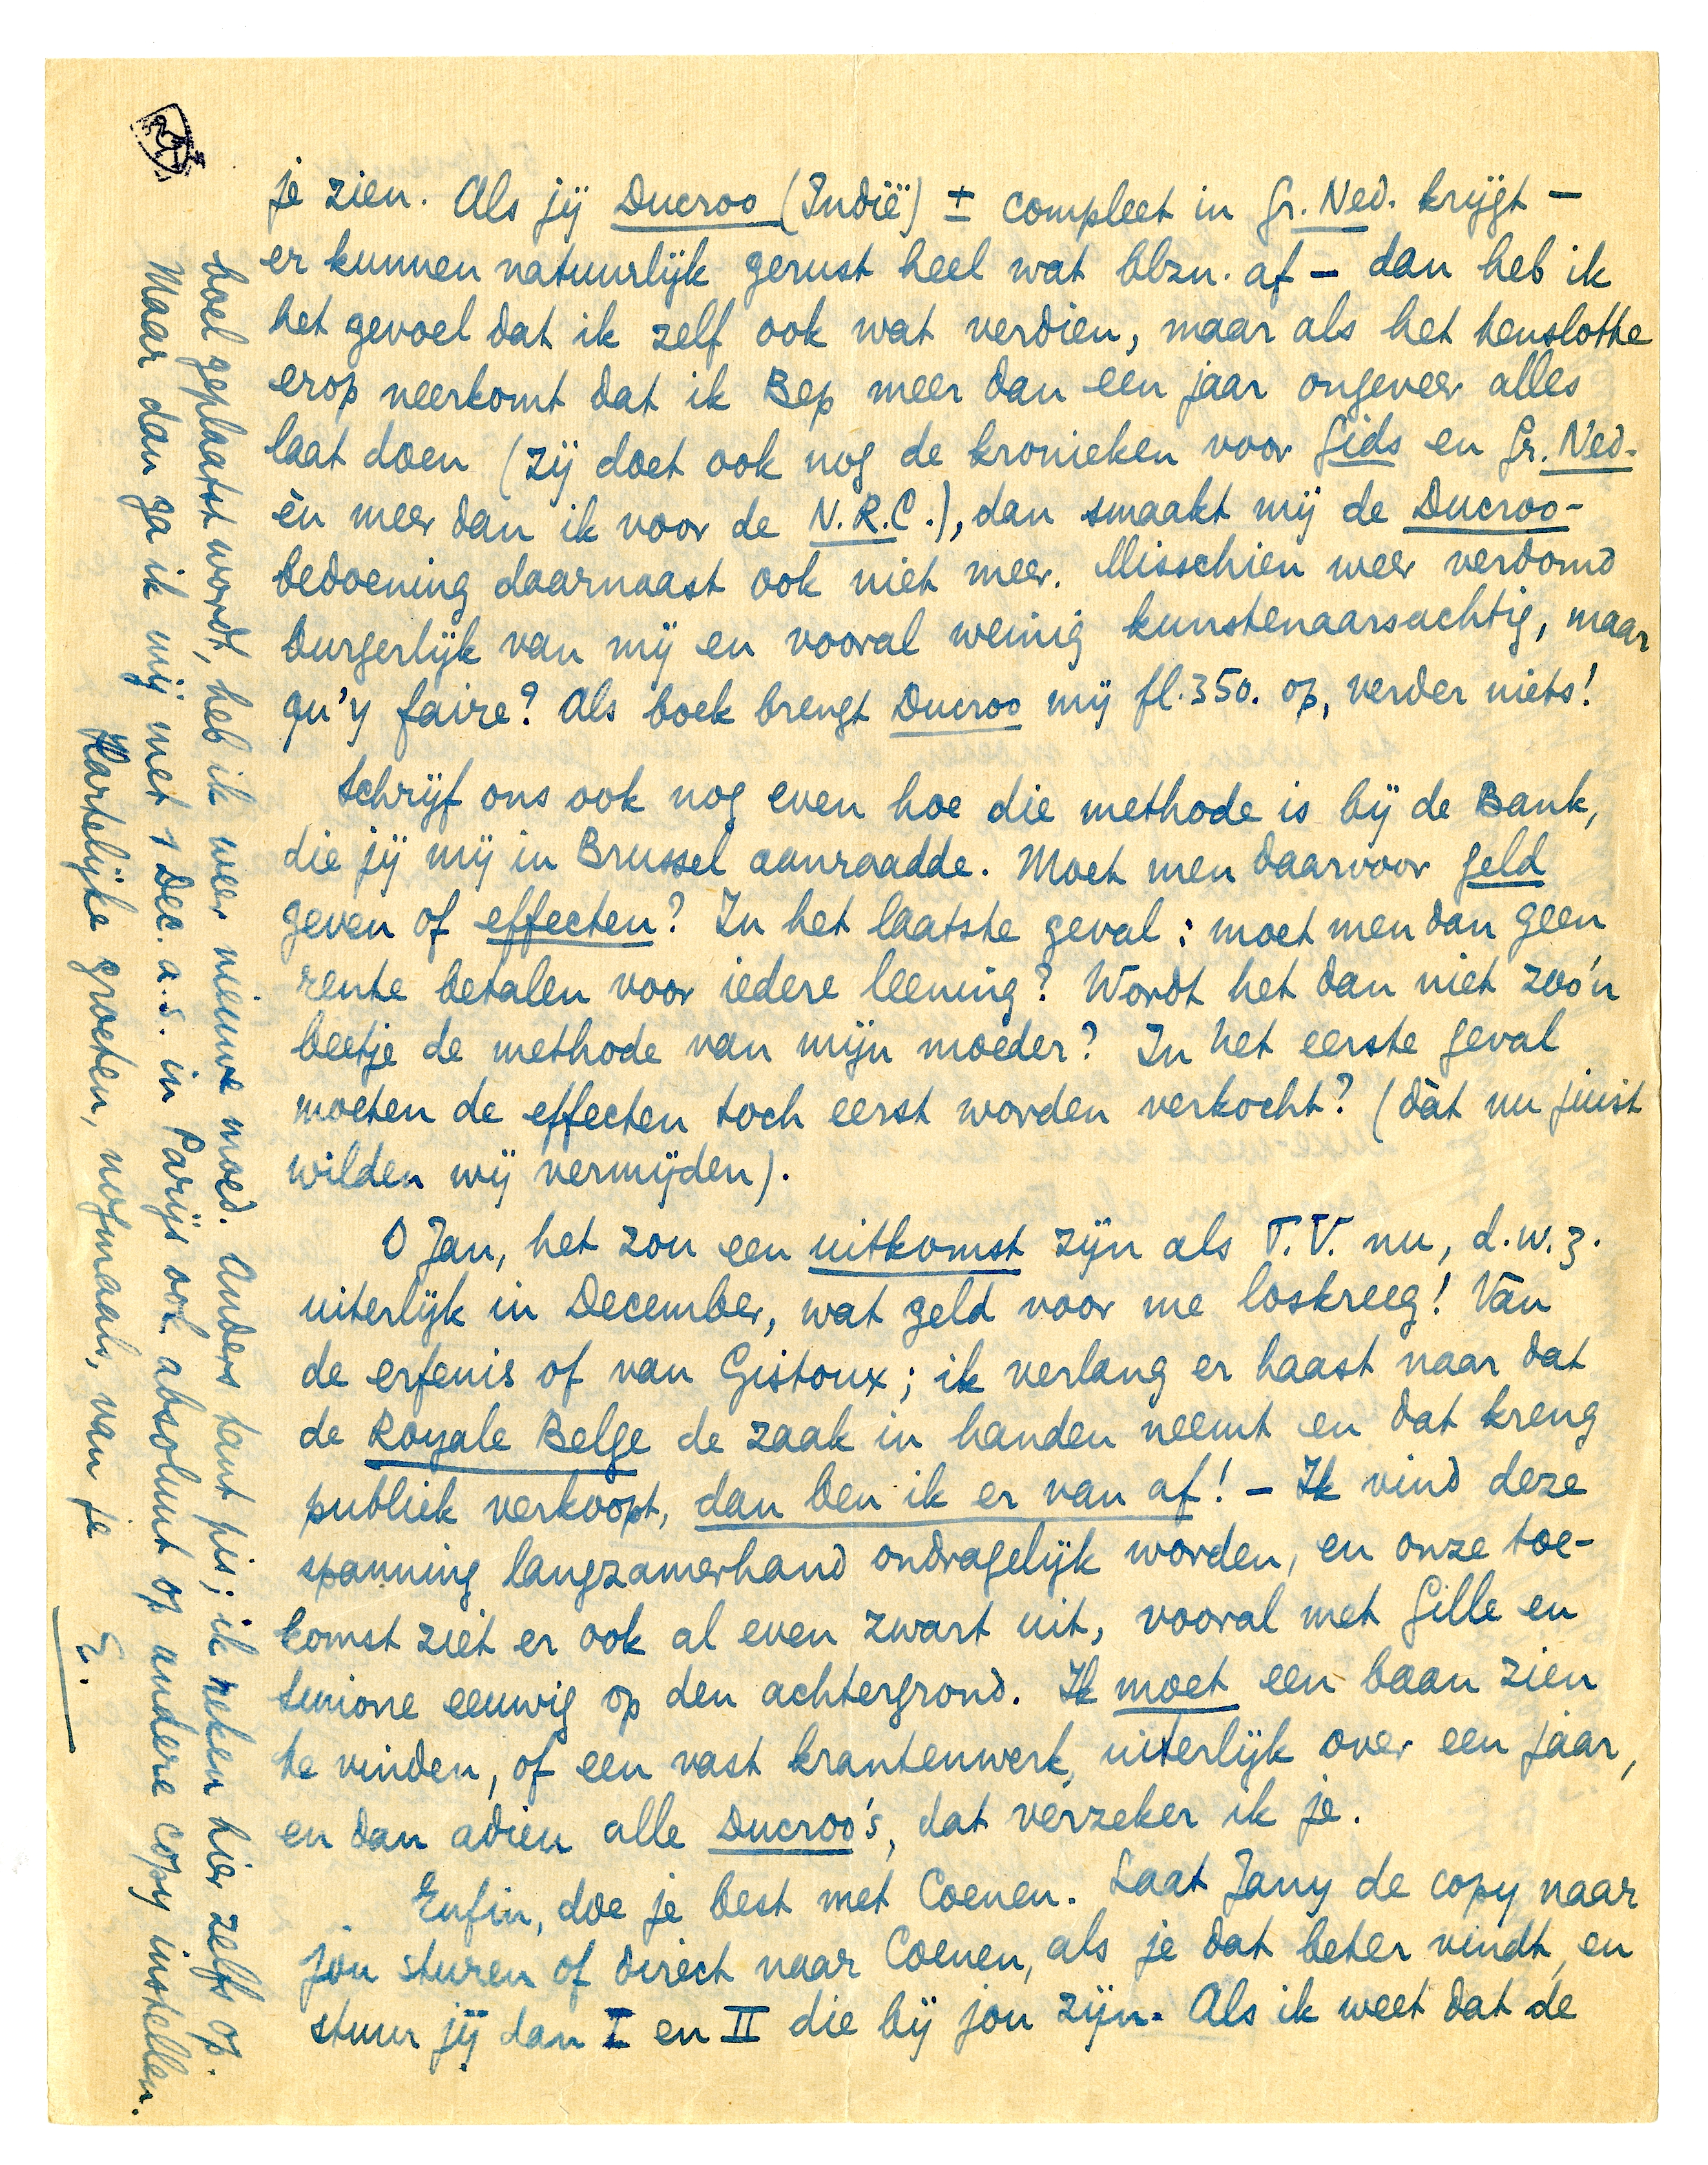 je zien. Als jij Ducroo (Indië) ± compleet in Gr. Ned. krijgt –
er kunnen natuurlijk gerust heel wat blzn. af – dan heb ik
het gevoel dat ik zelf ook wat verdien, maar als het tenslotte
erop neerkomt dat ik Bep meer dan een jaar ongeveer alles
laat doen (zij doet ook nog de kronieken voor Gids en Gr. Ned.
èn meer dan ik voor de N.R.C.), dan smaakt mij de Ducroo-
bedoening daarnaast ook niet meer. Misschien weer verdomd
burgerlijk van mij en vooral weinig kunstenaarsachtig, maar
qu'y faire? Als boek brengt Ducroo mij fl.350. op, verder niets!
Schrijf ons ook nog even hoe die methode is bij de Bank,
die jij mij in Brussel aanraadde. Moet men daarvoor geld
geven of effecten? In het laatste geval: moet men dan geen
rente betalen voor iedere leening? Wordt het dan niet zoo'n
beetje de methode van mijn moeder? In het eerste geval
moeten de effecten toch eerst worden verkocht? (dàt nu juist
wilden wij vermijden).
O Jan, het zou een uitkomst zijn als T.V. nu, d.w.z.
uiterlijk in December, wat geld voor me loskreeg! Van
de erfenis of van Gistoux; ik verlang er haast naar dat
de Royale Belge de zaak in handen neemt en dat kreng
publiek verkoopt, dan ben ik er van af! – Ik vind deze
spanning langzamerhand ondragelijk worden, en onze toe-
komst ziet er ook al even zwart uit, vooral met Gille en
Simone eeuwig op den achtergrond. Ik moet een baan zien
te vinden, of een vast krantenwerk, uiterlijk over een jaar,
en dan adieu alle Ducroo's, dat verzeker ik je.
Enfin, doe je best met Coenen. Laat Jany de copy naar
jou sturen of direct naar Coenen, als je dat beter vindt, en
stuur jij dan I en II die bij jou zijn. Als ik weet dat de
boel geplaatst wordt, heb ik weer nieuwe moed. Anders tant pis; ik reken hier zelfs op.
Maar dan ga ik mij met 1 Dec. a.s. in Parijs ook absoluut op andere copy instellen.
Hartelijke groeten, nogmaals, van je
E.